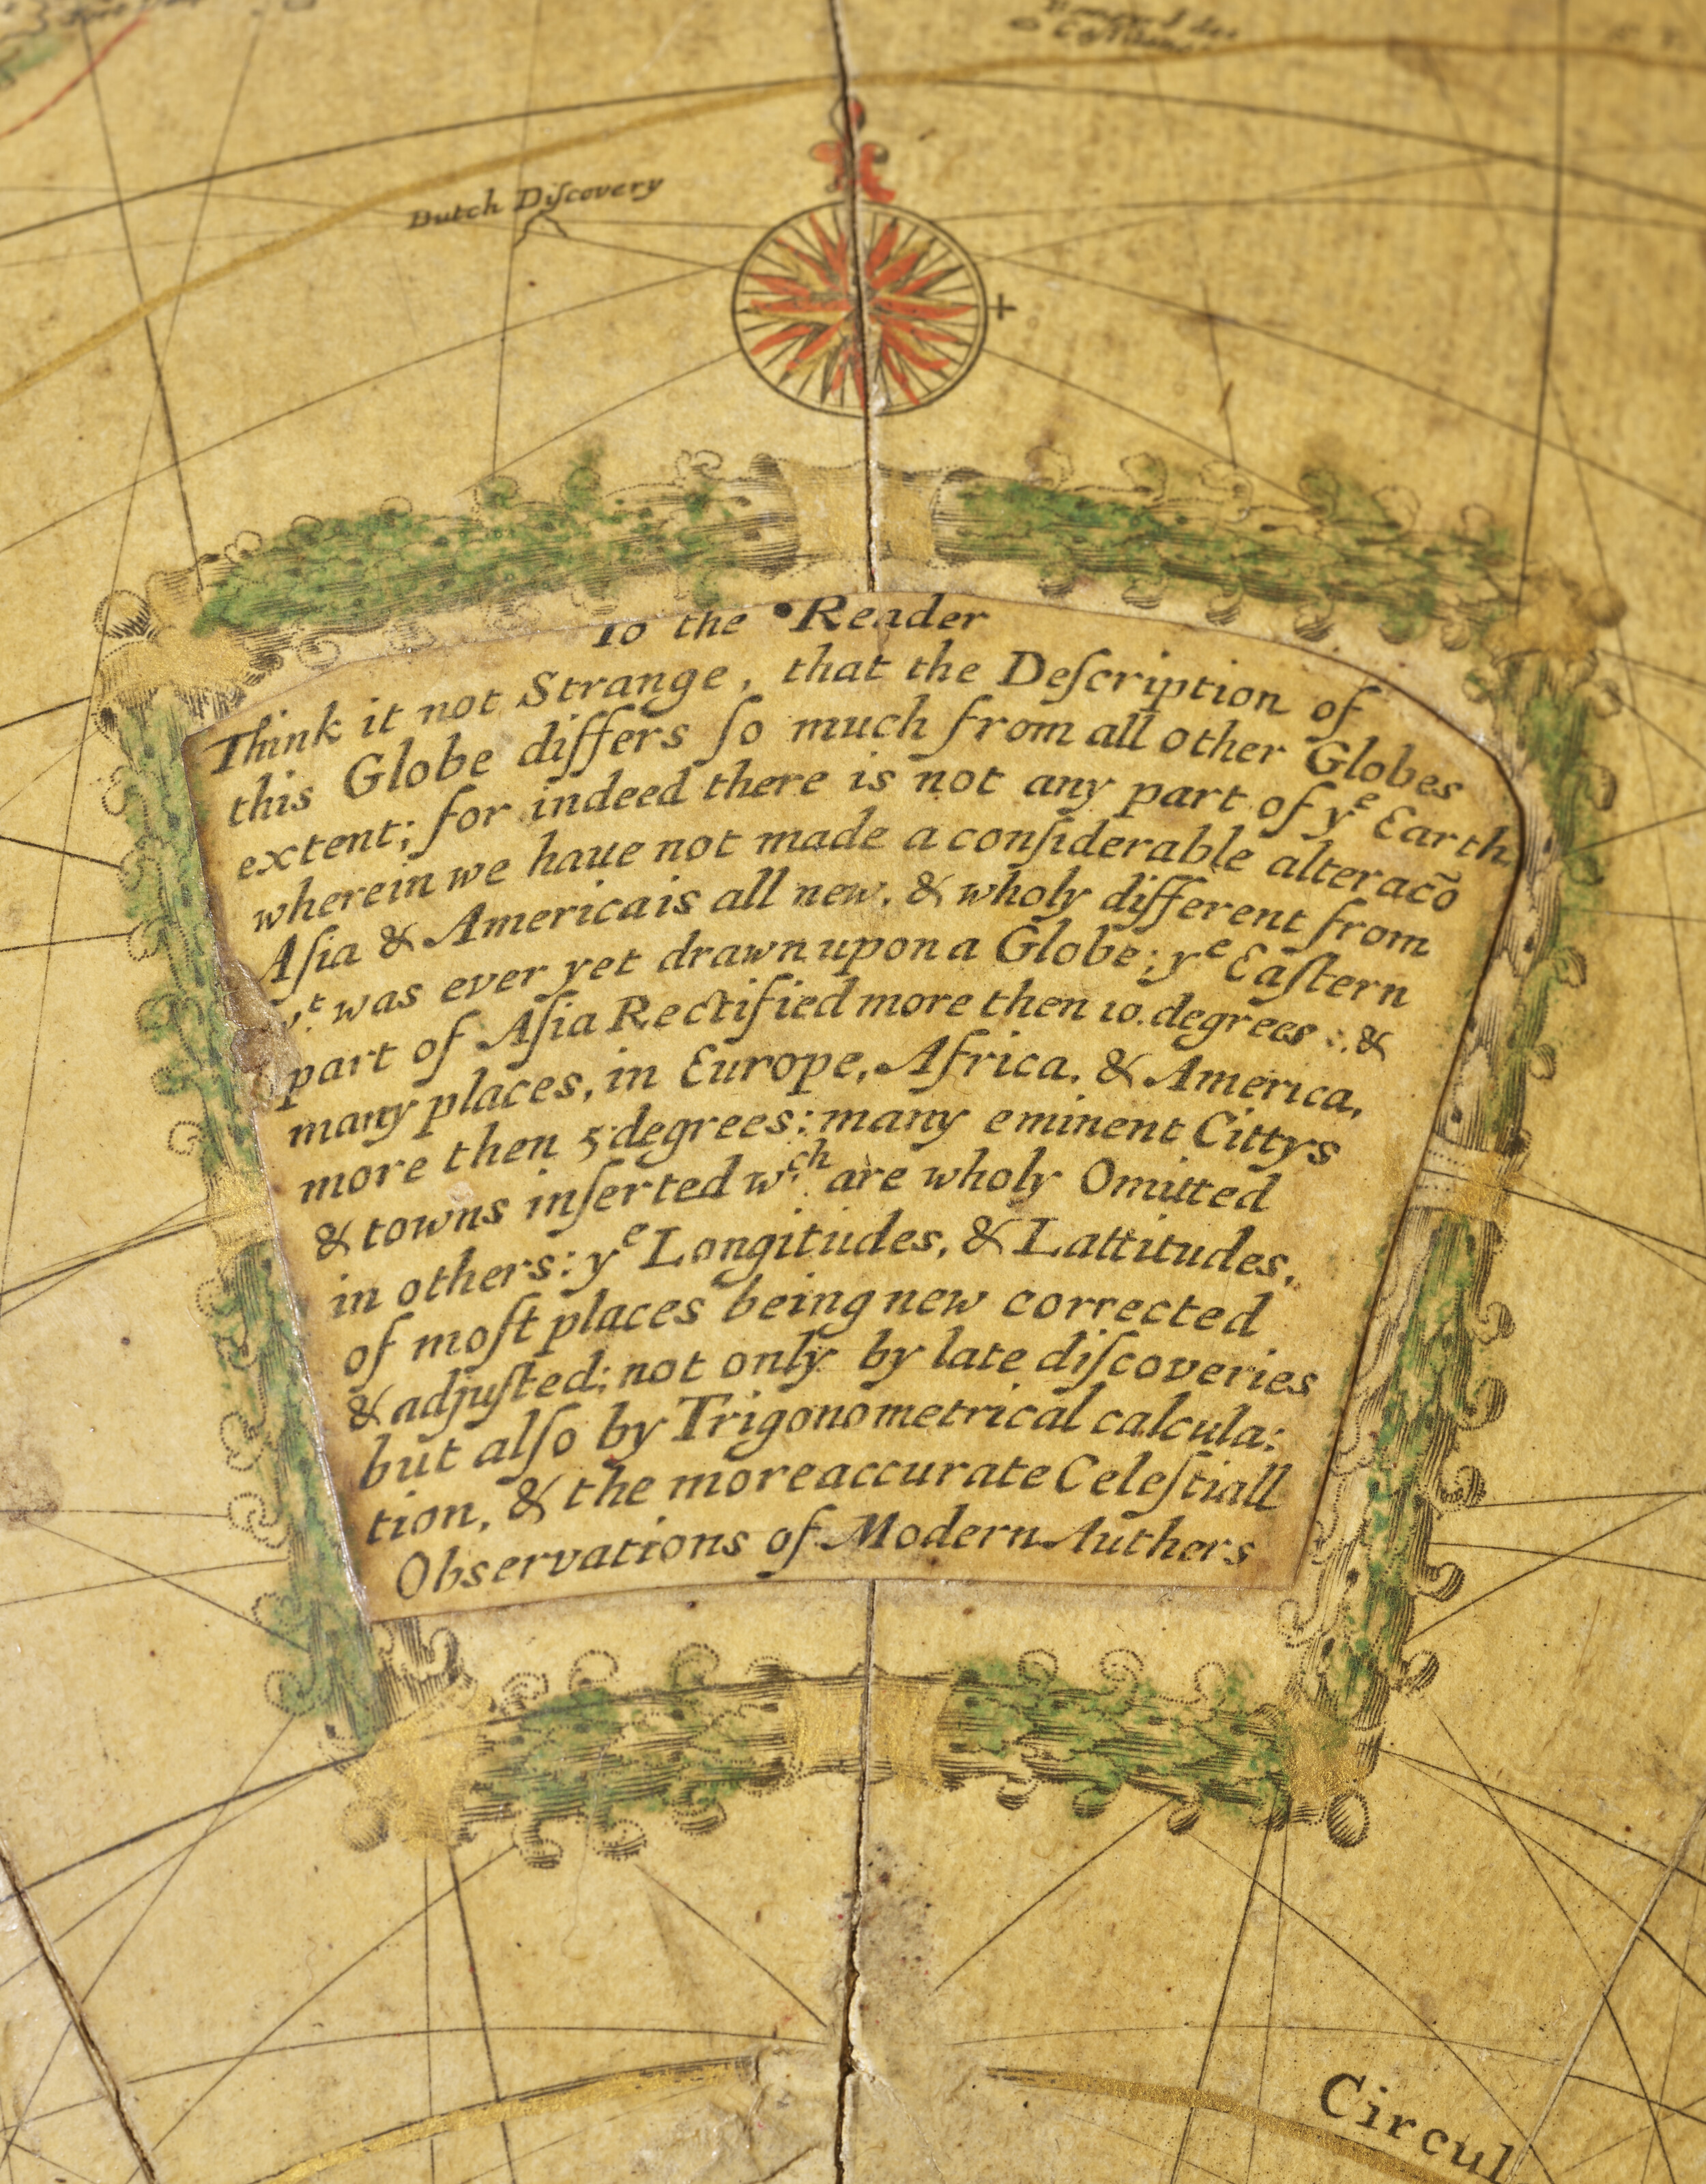 Dutch Diſcovery
To the Reader
Think it not Strange, that the Deſcription of
this Globe differs ſo much from all other Globes
extent; for indeed there is not any part of yᵉ Earth
wherein we haue not made a conſiderable alteracõ
Aſia & America is all new, & wholy different from
yᵗ was ever yet drawn upon a Globe; yᵉ Eaſtern
part of Aſia Rectified more then 10. degrees :. &
many places, in Europe, Africa, & America,
more then 5 degrees: many eminent Cittys
& towns inſerted wᶜʰ are wholy Omitted
in others: yᵉ Longitudes, & Lattitudes,
of moſt places being new corrected
& adjuſted; not only by late diſcoveries
but alſo by Trigonometrical calcula:
tion, & the more accurate Celeſtiall
Observations of Modern Authers
Circul